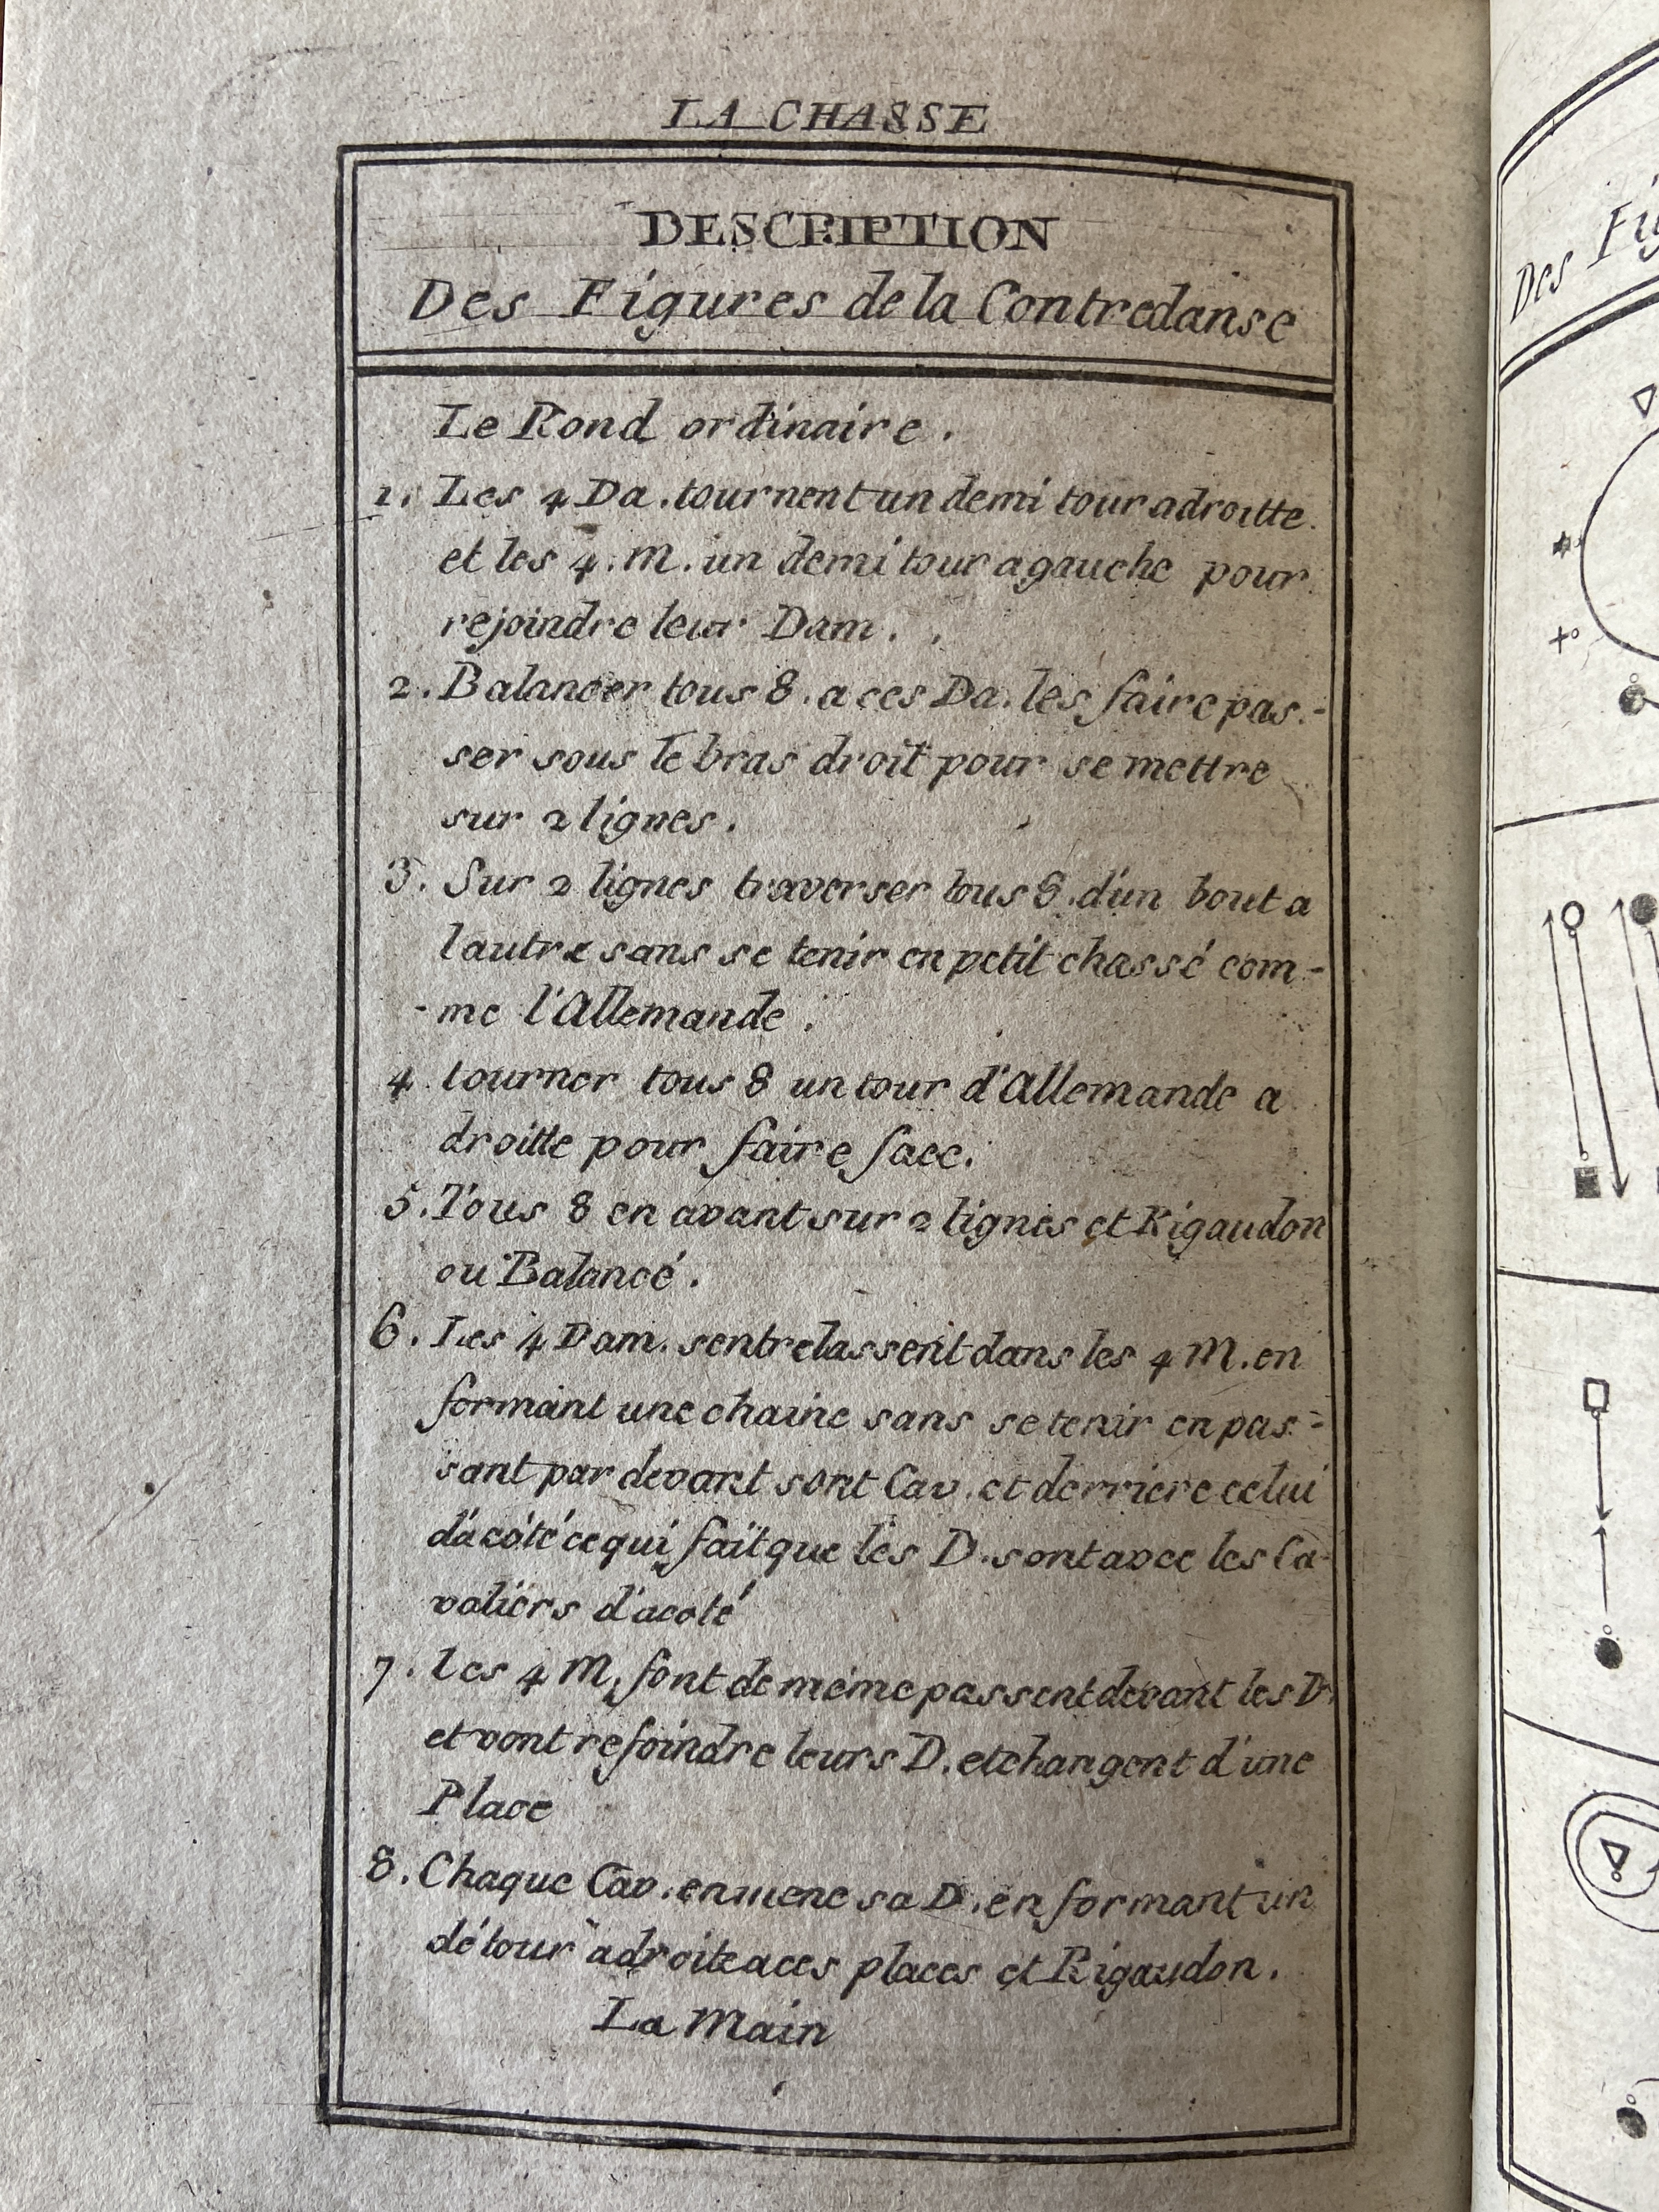 LA CHASSE
DESCRIPTION
Des Figures de la Contredanse
Le Rond ordinaire.
1. Les 4 Da. tournent un demi tour a droitte.
et les 4. M. un demi tour a gauche pour
rejoindre leur Dam.
2. Balancer tous 8. a ces Da. les faire pas-
ser sous le bras droit pour se mettre
sur 2 lignes.
3. Sur 2 lignes traverser tous 8. d'un bout a
lautre sans se tenir en petit chassé com-
-me l'Allemande.
4 tourner tous 8 un tour d'Allemande a
droitte pour faire face.
5. Tous 8 en avant sur 2 lignes et Rigaudon
ou Balancé.
6. Les 4 Dam. sentrelassent dans les 4 M. en
formant une chaine sans se tenir en pas-
sant par devant sont Cav. et derriere celui
d'acôté ce qui fait que les D. sont avec les Ca-
valiers d'acoté
7. les 4 M. font de même passent devant les D.
et vont rejoindre leurs D. et changent d'une
Place
8. Chaque Cav. enmene sa D. en formant un
détour a droite a ces places et Rigaudon.
La Main
Des Fig